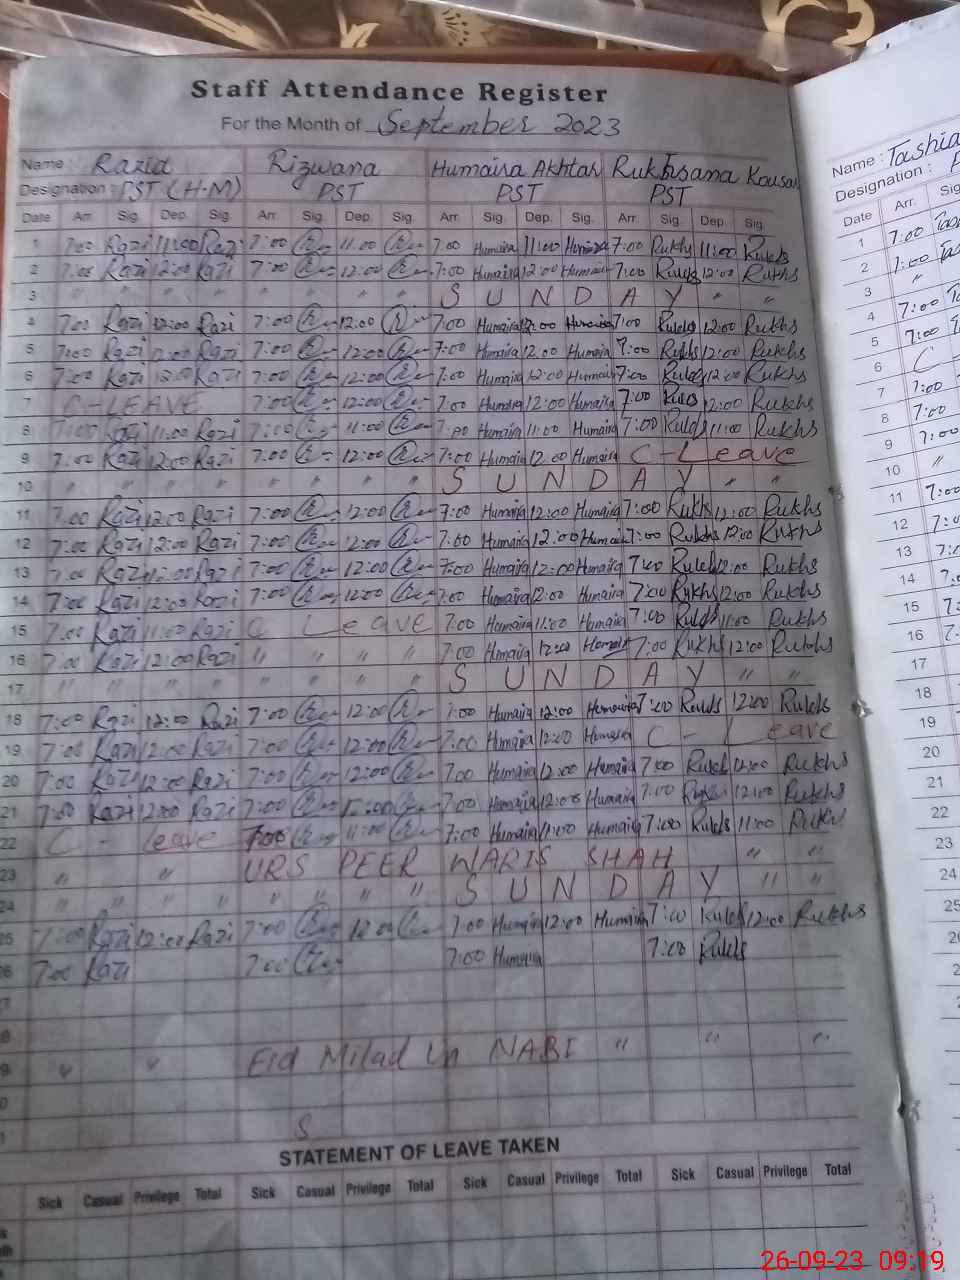 Staff Attendance Register
For the Month of September 2023
Name : Razia Rizwana Humaira Akhtar Rukhsana Kousar
Designation : PST (H.M) PST PST PST
Date Arr. Sig. Dep. Sig. Arr. Sig. Dep. Sig. Arr. Sig. Dep. Sig. Arr. Sig. Dep. Sig.
1 7:00 Razi 11:00 Razi 7:00 11:00 7:00 Humaira 11:00 Humaira 7:00 Rukhs 11:00 Rukhs
2 7:00 Razi 12:00 Razi 7:00 12:00 7:00 Humaira 12:00 Humaira 7:00 Rukhs 12:00 Rukhs
3 " " " " " " " " S U N D A Y " "
4 7:00 Razi 12:00 Razi 7:00 12:00 7:00 Humaira 12:00 Humaira 7:00 Rukhs 12:00 Rukhs
5 7:00 Razi 12:00 Razi 7:00 12:00 7:00 Humaira 12:00 Humaira 7:00 Rukhs 12:00 Rukhs
6 7:00 Razi 12:00 Razi 7:00 12:00 7:00 Humaira 12:00 Humaira 7:00 Rukhs 12:00 Rukhs
7 C-LEAVE 7:00 12:00 7:00 Humaira 12:00 Humaira 7:00 Rukhs 12:00 Rukhs
8 7:00 Razi 11:00 Razi 7:00 11:00 7:00 Humaira 11:00 Humaira 7:00 Rukhs 11:00 Rukhs
9 7:00 Razi 12:00 Razi 7:00 12:00 7:00 Humaira 12:00 Humaira C-Leave
10 " " " " " " " " S U N D A Y " "
11 7:00 Razi 12:00 Razi 7:00 12:00 7:00 Humaira 12:00 Humaira 7:00 Rukhs 12:00 Rukhs
12 7:00 Razi 12:00 Razi 7:00 12:00 7:00 Humaira 12:00 Humaira 7:00 Rukhs 12:00 Rukhs
13 7:00 Razi 12:00 Razi 7:00 12:00 7:00 Humaira 12:00 Humaira 7:00 Rukhs 12:00 Rukhs
14 7:00 Razi 12:00 Razi 7:00 12:00 7:00 Humaira 12:00 Humaira 7:00 Rukhs 12:00 Rukhs
15 7:00 Razi 11:00 Razi C Leave 7:00 Humaira 11:00 Humaira 7:00 Rukhs 11:00 Rukhs
16 7:00 Razi 12:00 Razi " " " " 7:00 Humaira 12:00 Humaira 7:00 Rukhs 12:00 Rukhs
17 " " " " " " " " S U N D A Y " "
18 7:00 Razi 12:00 Razi 7:00 12:00 7:00 Humaira 12:00 Humaira 7:00 Rukhs 12:00 Rukhs
19 7:00 Razi 12:00 Razi 7:00 12:00 7:00 Humaira 12:00 Humaira C - Leave
20 7:00 Razi 12:00 Razi 7:00 12:00 7:00 Humaira 12:00 Humaira 7:00 Rukhs 12:00 Rukhs
21 7:00 Razi 12:00 Razi 7:00 12:00 7:00 Humaira 12:00 Humaira 7:00 Rukhs 12:00 Rukhs
22 C - leave 7:00 11:00 7:00 Humaira 11:00 Humaira 7:00 Rukhs 11:00 Rukhs
23 " " URS PEER WARIS SHAH " "
24 " " " " " " " " S U N D A Y " "
25 7:00 Razi 12:00 Razi 7:00 12:00 7:00 Humaira 12:00 Humaira 7:00 Rukhs 12:00 Rukhs
26 7:00 Razi 7:00 7:00 Humaira 7:00 Rukhs
7
8
9 " " Eid Milad Un NABI " " "
0
1 S
STATEMENT OF LEAVE TAKEN
Sick Casual Privilege Total Sick Casual Privilege Total Sick Casual Privilege Total Sick Casual Privilege Total
Name : Tashia
Designation :
Date Arr.
1 7:00
2 7:00
3 "
4 7:00
5 7:00
6 C
7 7:00
8 7:00
9 7:00
10 "
11 7:00
12
13
14
15
16
17
18
19
20
21
22
23
24
25
26-09-23 09:19